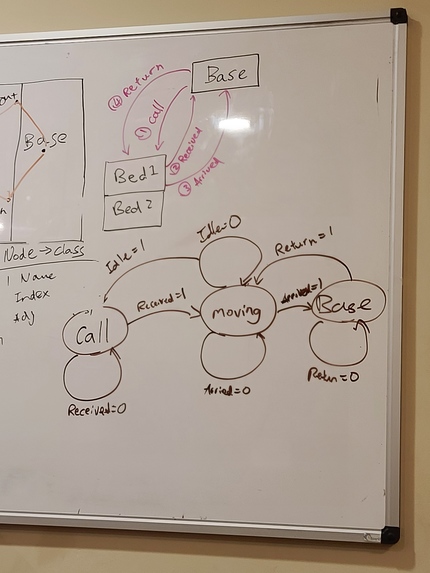 Base
④ Return
① Call
② Received
③ Arrived
Bed 1
Bed 2
Base
Node → Class
Name
Index
Adj
Idle=0
Idle=1
Return=1
Received=1
Arrived=1
Call
moving
Base
Received=0
Arried=0
Retun=0